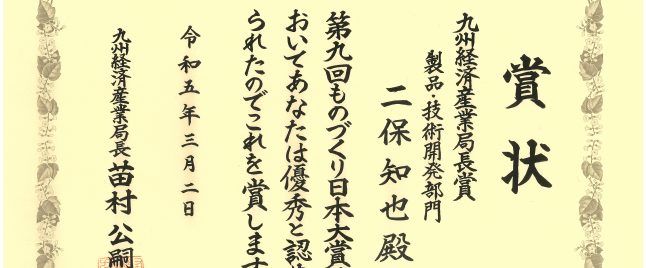 賞状
九州経済産業局長賞
製品・技術開発部門
二保知也殿
第九回ものづくり日本大賞
おいてあなたは優秀と認め
られたのでこれを賞します
令和五年三月二日
九州経済産業局長 苗村公嗣